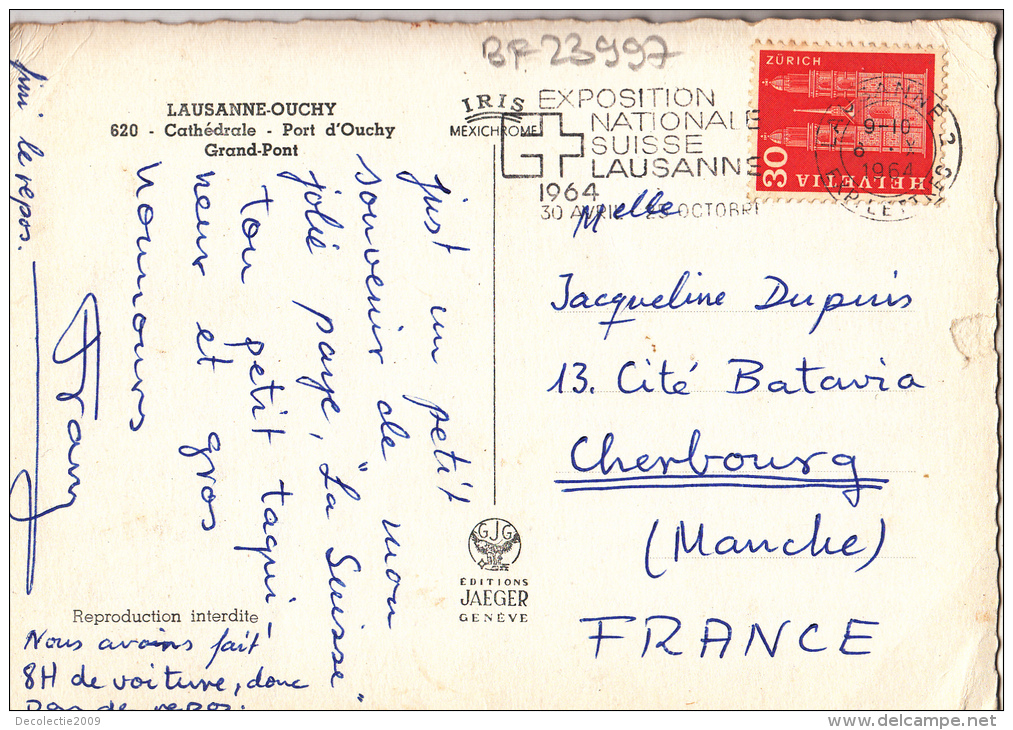 BF 23997
LAUSANNE-OUCHY
620 - Cathédrale - Port d'Ouchy
Grand-Pont
IRIS
MEXICHROME
EXPOSITION
NATIONALE
SUISSE
LAUSANNE
1964
30 AVRIL 25 OCTOBRE
ZÜRICH
30
HELVETIA
9-10
1964
just un petit
souvenir de mon
jolie paye, "La Suisse"
ton petit taqui,
neur et gros
nounours
Dany
fini le repos.
Nous avoins fait
8H de voiture, donc
pas de repos.
Melle
Jacqueline Dupuis
13. Cité Batavia
Cherbourg
(Manche)
FRANCE
GJG
ÉDITIONS
JAEGER
GENÈVE
Reproduction interdite
Decolectie2009
http://www.delcampe.net